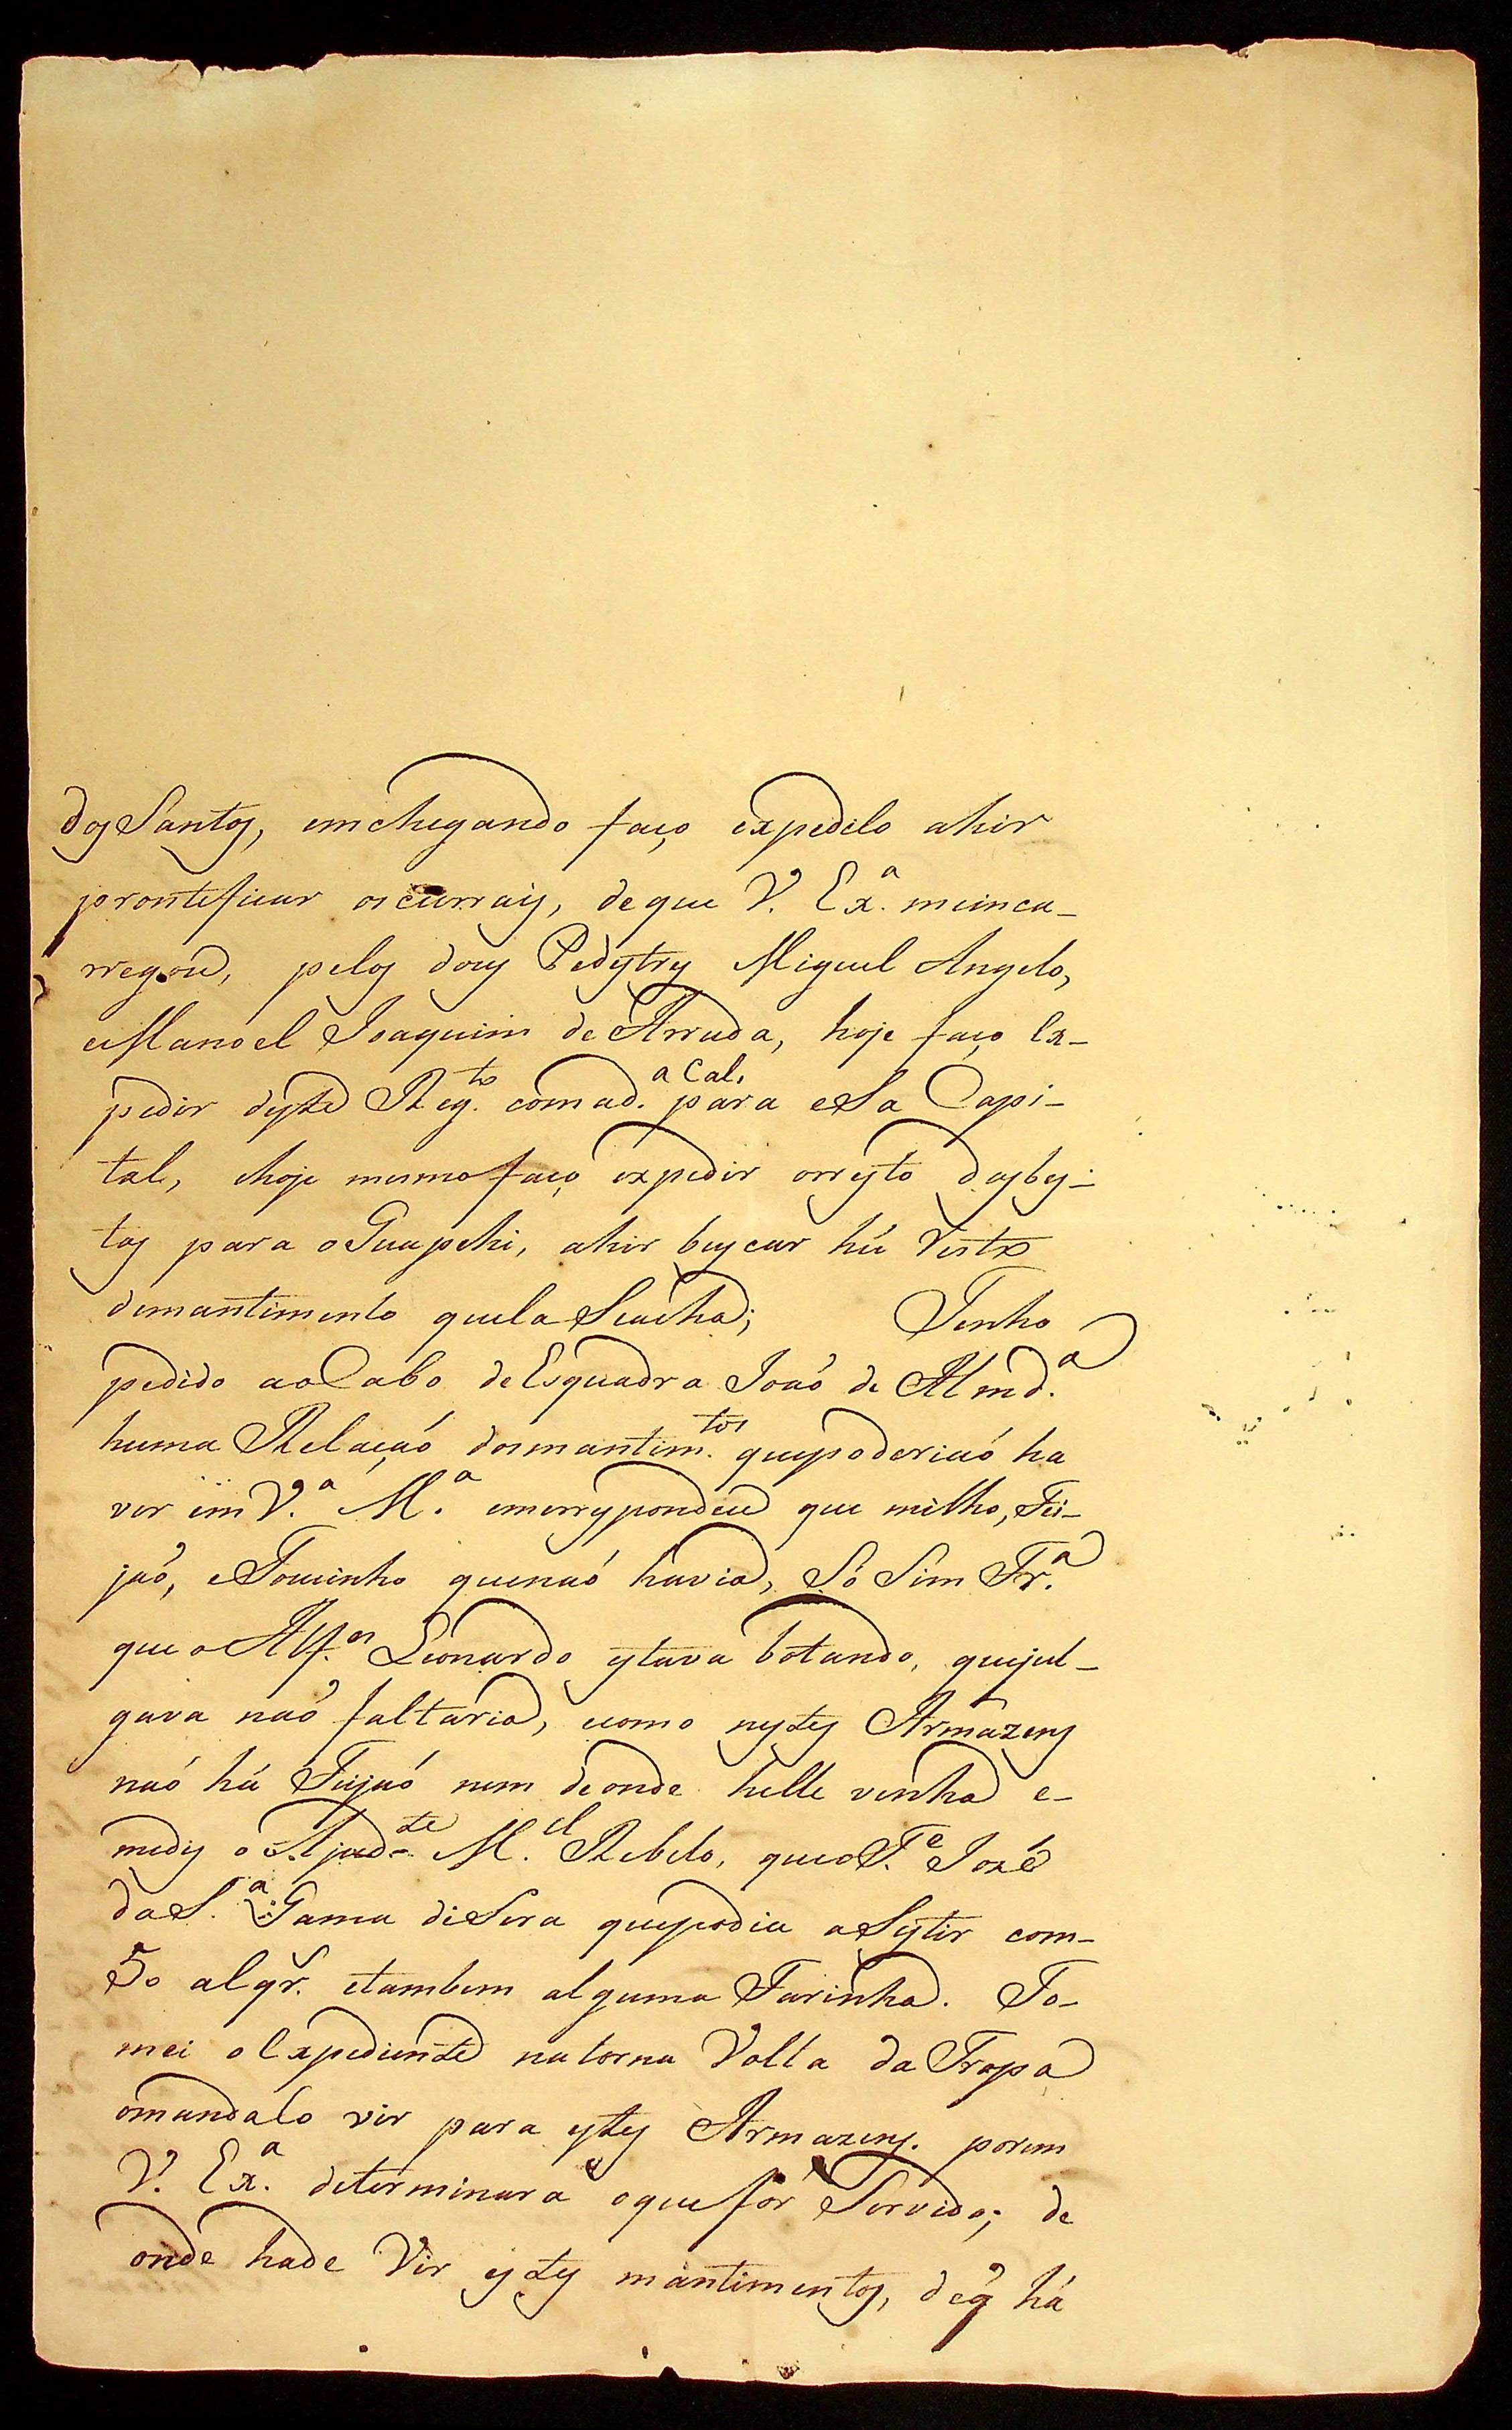 dos Santos, emchegando faço expedilo ahir
pronteficar oscurrais, deque V. Ex.ª meinca-
rregou, pelos dous Pedestres Miguel Angelo,
eManoel Joaquim de Arruda, hoje faço Ex-
pedir deste Reg.to comad.ª Cal. para eSa Capi-
tal, ehoje mesmo faço expedir oresto dasbes-
tas para oGuapehi, ahir buscar hú resto
demantimento quela Seacha; Tenho
pedido aoCabo deEsquadra Joaó de Almd.ª
huma Relaçaó dosmantim.tos quepoderiaó ha
ver em V.ª M.ª emerrespondeu que milho, Fei-
jaó, eToucinho quenaó havia, Só Sim Fr.ª
que o Alf.es Leonardo estava botando, quejul-
gava naó faltaria, ecomo nestes Armazens
naó há Feijaó nem deonde helle venha e-
mediz o Ajud.te M.el Rebelo, queoT.e Jozé
daS.ª Gama diSera quepodia aSestir com-
50 alqr. etambem alguma Farinha. To-
mei o Expediente natorna Volta da Tropa
omandalo vir para estes Armazens. porem
V. Ex.ª determinará oquefor Servido; de
onde hade Vir estes mantimentos, deq̃ há